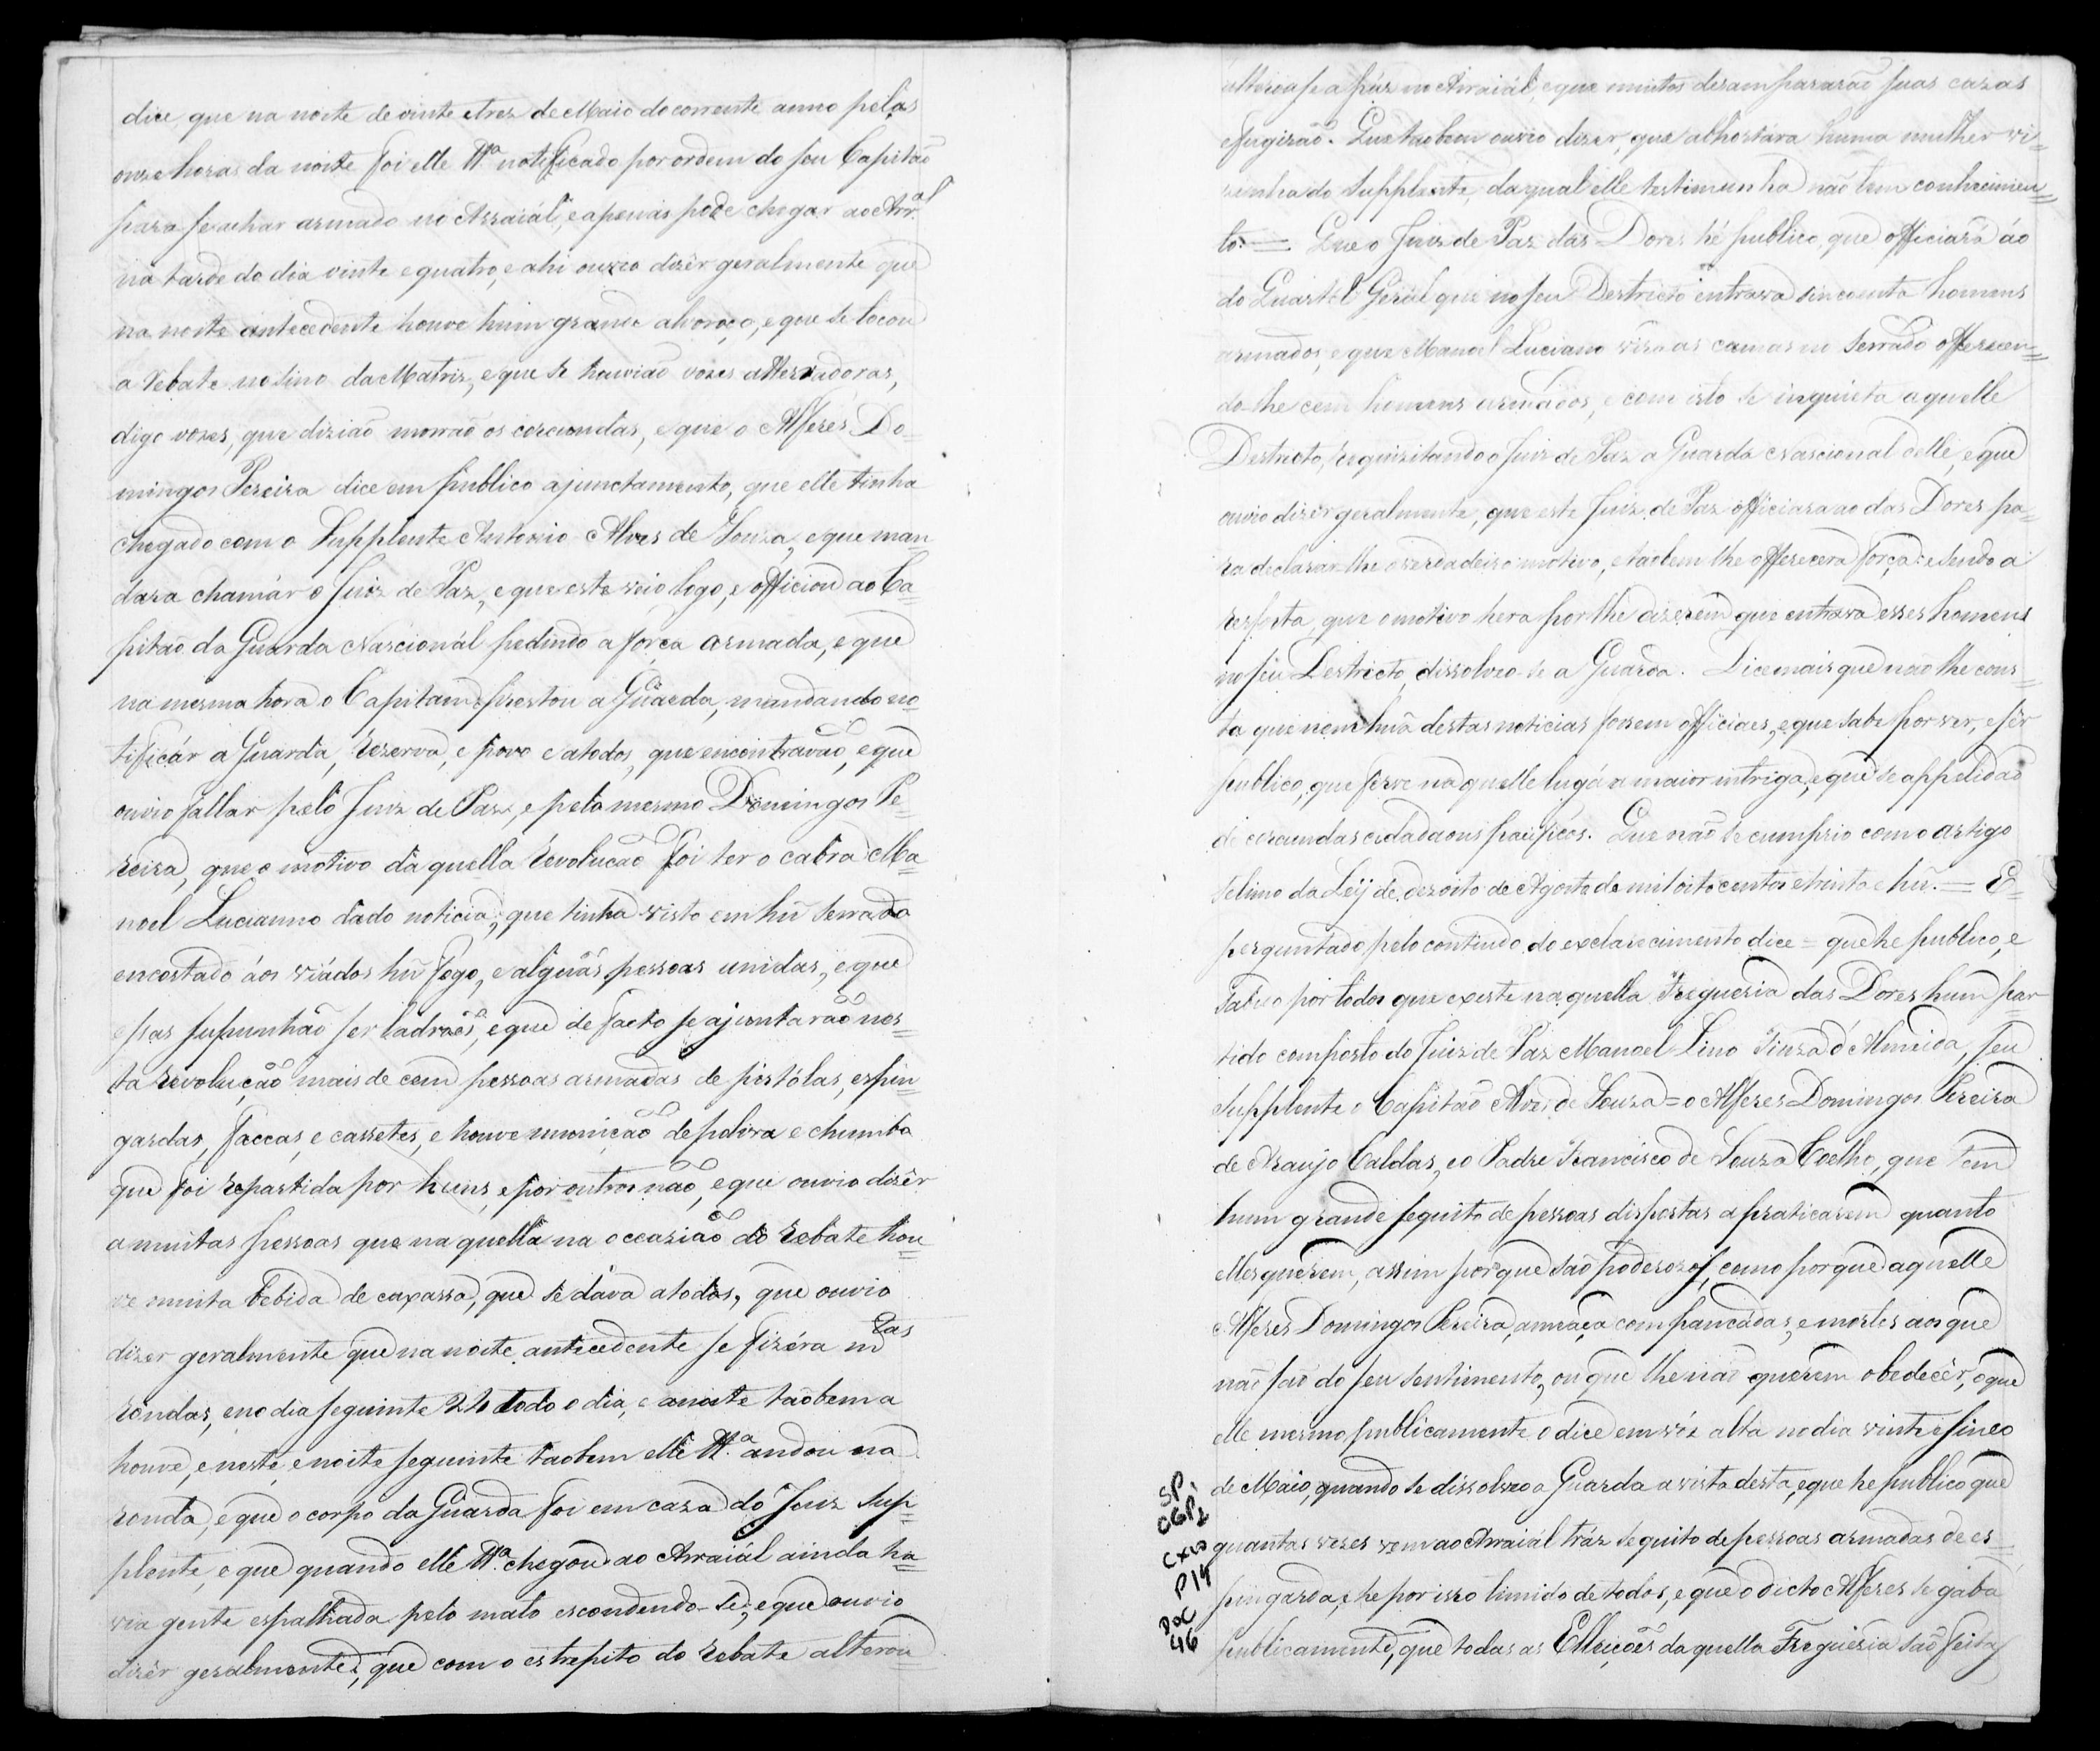 dice, que na noite de vinte e trez de Maio do corrente anno pelas
onze horas da noite foi elle Tt.ª notificado por ordem do seu Capitaõ
para se achar armado no Arraiál, e apenas pode chegar ao Arr.al
na tarde do dia vinte e quatro, e ahi ouvio dizêr geralmente que
na noite antecedente houve hum grande alvoroço, e que se tocou
a rebate no sino da Matriz, e que se houviaõ vozes atterradoras,
digo vozes, que diziaõ morraõ os corcundas, e que o Alferes Do=
mingos Pereira dice em publico ajunctamento, que elle tinha
chegado com o Supplente Antonio Alves de Souza, e que man=
dara chamár o Juiz de Paz, e que este veio logo, e officiou ao Ca=
pitaõ da Guarda Nascionál pedindo a força armada, e que
na mesma hora o Capitam aprestou a Guarda, mandando no=
tificár a Guarda, rezerva, e povo e a todos, que encontravaõ, e que
ouvio fallar pelo Juiz de Paz, e pelo mesmo Domingos Pe=
reira, que o motivo da quella revoluçaõ foi ter o cabra Ma=
noel Lucianno dado noticia, que tinha visto em hũ serrado
encostado áos viádos hũ fogo, e alguãs pessoas unidas, e que
essas supunhaõ ser ladroẽs, e que de facto se ajuntaraõ nes=
ta revoluçaõ mais de cem pessoas armadas de pistólas, espin=
gardas, faccas, e cassetes, e houve muniçaõ de polvra e chumbo
que foi repartida por huns, e por outros naõ, e que ouvio dizêr
a muitas pessoas que na quella na occaziaõ do rebate hou=
ve muita bebida de caxassa, que se dava a todos, que ouvio
dizer geralmente que na noite antecedente se fizéra m.tas
rondas, e no dia seguinte 24 todo o dia, e a noite taõbem a
houve, e neste, e noite seguinte taobem elle Tt.ª andou na
ronda, e que o corpo da Guarda foi em caza do Juiz Sup=
plente, e que quando elle Tt.ª chegou ao Arraiál ainda ha=
via gente espalhada pelo mato escondendo-se, e que ouvio
dizêr geralmente, que com o estrepito do rebate alterou
se a páz no Arraiál, e que muitos desampararaõ suas cazas
e fugiraõ. Que taobem ouvio dizer, que abhortára huma mulher vi=
zinha do Supplente, da qual elle testimunha naõ tem conhecimen=
to. = Que o Juiz de Paz das Dores hé publico, que officiará áo
do Quartél Geral que no seu Destricto entrara sincoenta homens
armados, e que Manoel Luciano vira as camas no Serrado offerecen=
do-lhe cem homens armados, e com isto se inquieta aquelle
Destricto, requizitando o Juiz de Paz a Guarda Nascional delle, e que
ouvio dizêr geralmente, que este Juiz de Paz officiara ao das Dores pa=
ra declarar-lhe o verdadeiro motivo, e taobem lhe offerecera força: e sendo a
resposta que o motivo hera por lhe dizerem que entrara esses homens
no seu Destricto, dissolveo-se a Guarda. Dice mais que naõ lhe cons=
ta que nem huã destas noticias fossem officiaes, e que sabe por ver, e sêr
publico, que ferve na quelle lugár a maior intriga, e que se appelidaõ
de corcundas cidadaons pacificos. Que naõ se cumprio com o artigo
setimo da Leÿ de dezoito de Agosto de mil oito centos e trinta e hũ. = E=
perguntado pelo contindo do exclarecimento dice = que he publico, e
sabido por todos que existe na quella Freguezia das Dores hum par=
tido composto do Juiz de Paz Manoel Lino Pinza d'Almeida, seu
Supplente o Capitaõ Alves de Souza = o Alferes Domingos Pereira
de Araujo Caldas, e o Padre Francisco de Souza Coelho, que tem
hum grande sequito de pessoas dispostas a praticarem quanto
elles querem, assim porque saõ poderozos, como porque aquelle
Alferes Domingos Pereira, ameaça com pancadas, e mortes aos que
naõ saõ do seu sentimento, ou que lhe naõ querem obedecêr, o que
elle mesmo publicamente o dice em vóz alta no dia vinte e sinco
de Maio, quando se dissolveo a Guarda a vista desta, e que he publico que
quantas vezes vem ao Arraiál tráz sequito de pessoas armadas de es=
pingarda, e he por isso timido de todos, e que o dicto Alferes se gaba
publicamente, que todas as Elleiçoẽs da quella Freguezia saõ feitas
SP.
CGP2
CX10
P14
DOC
46